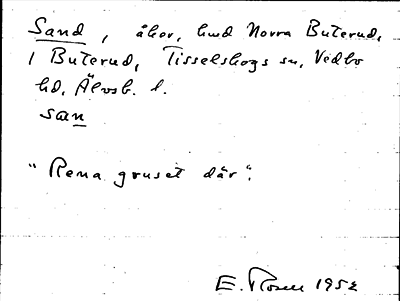 Sand, åker, hmd Norra Buterud,
1 Buterud, Tisselskogs sn, Vedbo
hd, Älvsb. l.
san
"Rena gruset där".
E. Rosen 1952